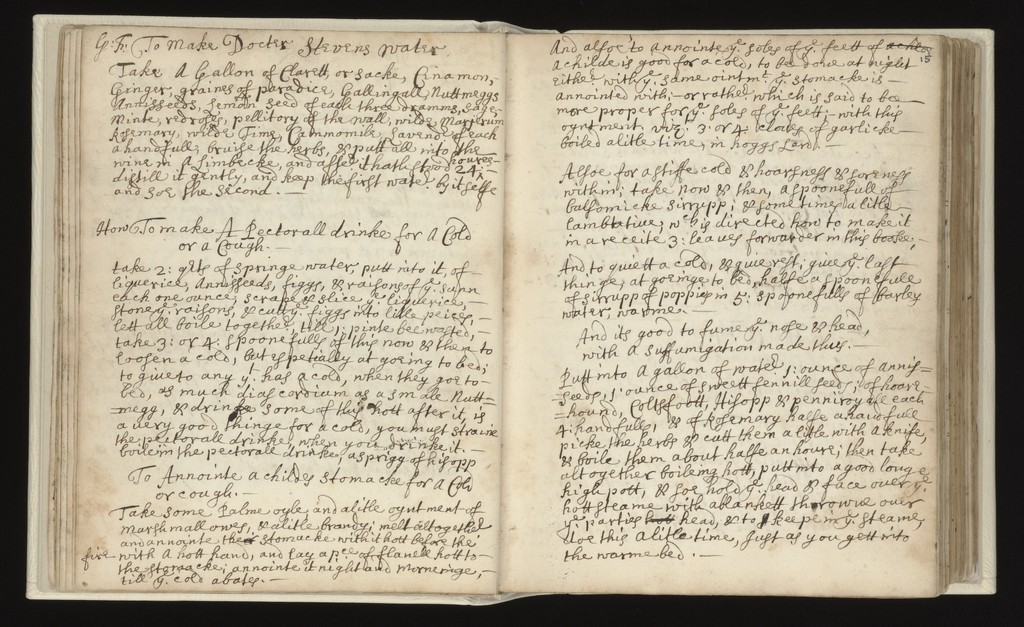 To Make Docter Stevens water
Take A Gallon of Clarett, or sacke, Cinamon,
Ginger, graines of paradice, Gallingall, Nuttmeggs
Annisseeds, femall seed of each three dramms, sage
Minte, redroses, pellitory of the wall, wilde Marierum
Rosemary, wilde Time, Cammomile, Lavender of each
a handfull, bruise the herbs, & putt all into the
wine in A Limbecke, and after it hath stood 24 houres
distill it gently, and keep the first water by it selfe
and soe the second. —
How To make A Pectorall drinke for A Cold
or a Cough. —
take 2: qts of springe water, putt into it, of
liquerice, Annisseeds, figgs, & raisons of ye sunn
each one ounce, scrape & slice ye liquerice,
stone ye raisons, & cutt ye figgs into litle peices,
lett all boile together, till 1: pinte bee wasted,
take 3: or 4: spoonefulls of this now & then to
loosen a cold, but espetially at goeing to bed;
to give to any yt has a cold, when they goe to
bed, as much diascordium as a smale Nutt-
megg, & drinke some of this hott after it, is
a very good thinge for a cold, you must straine
the pectorall drinke, when you drinke it. —
boile in the pectorall drinke, a sprigg of hisopp
To Annointe a childs Stomacke for A Cold
or cough. —
Take some Palme oyle and alitle oyntment of
Marshmallowes, & alitle brandy; melt altogether
and annointe the stomacke with it hott before the
fire with A hott hand, and lay a pce of flanell hott to
the stomacke; annointe it night and morneinge,
till ye cold abates. —
15
And alsoe to annointe ye soles of ye feett of
A childe is good for a cold, to be done at night
either with ye same ointmt ye stomacke is
annointed with, or rather which is said to be
more proper for ye soles of ye feett, with this
oyntment, viz: 3: or 4: cloves of garlicke
boiled alitle time, in hoggs Lard. —
Alsoe for a stiffe cold & hoarsness & soreness
within; take now & then, a spoonefull of
balsomicke sirrupp; & sometimes alitle
lambtative; wch is directed how to make it
in a receite 3: leaves forwarder in this booke;
And to quiett a cold, & give rest, give ye last
thinge, at goeinge to bed, halfe a spoonefull
of sirrupp of poppies in 5: spoonefulls of Barley
water, warme. —
And its good to fume ye nose & head,
with a suffumigation made thus. —
Putt into A gallon of water 1: ounce of annis=
=seeds, 1: ounce of sweett fennill seeds; of hoare=
=hound, Coltsfoott, Hisopp & penniroyall each
4: handfulls, & of Rosemary halfe a handfull
picke the herbs & cutt them alitle with A knife,
& boile them about halfe an houre; then take
altogether boileing hott, putt into a good longe
high pott, & soe hold ye head & face over ye
hott steame with a blankett throwne over
ye parties head, & to keepe in ye steame,
doe this Alitle time, Just as you gett into
the warme bed. —